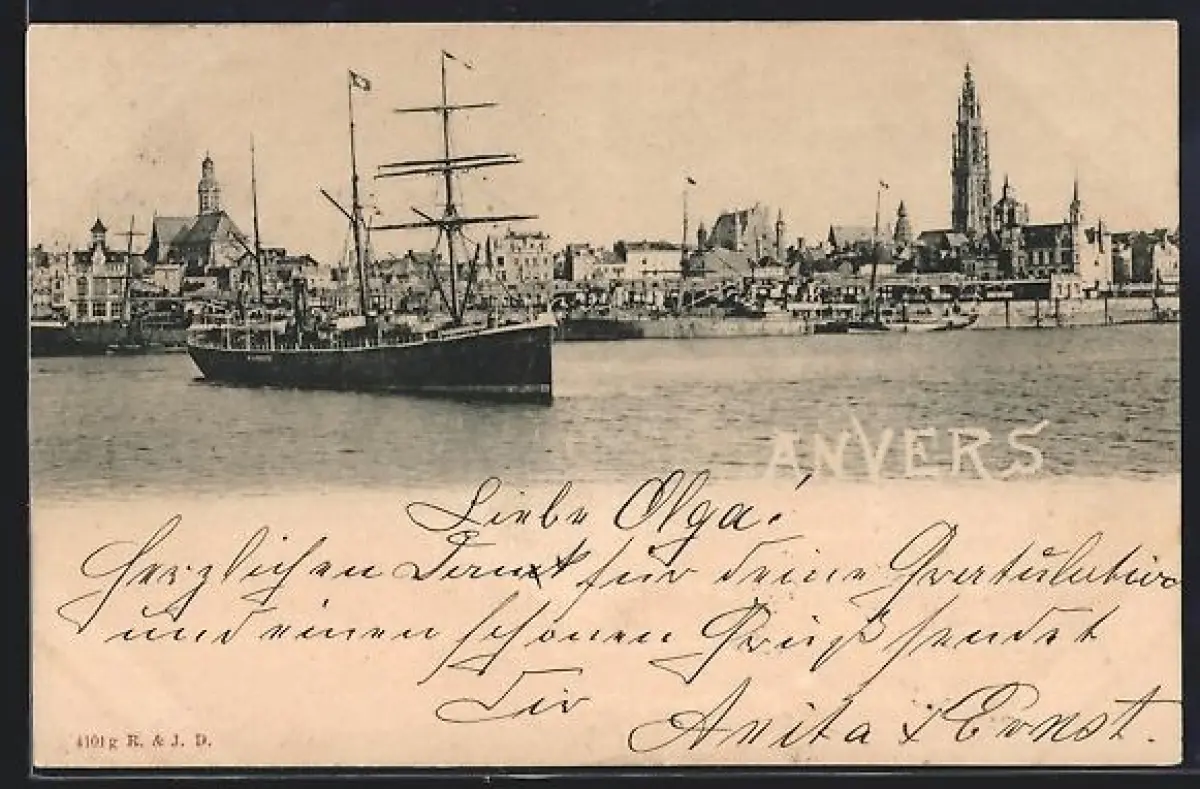 ANVERS
Liebe Olga!
Herzlichen Dank für deine Gratulation
und einen schönen Gruß sendet
Dir Anita & Ernst.
4101g K. & J. D.